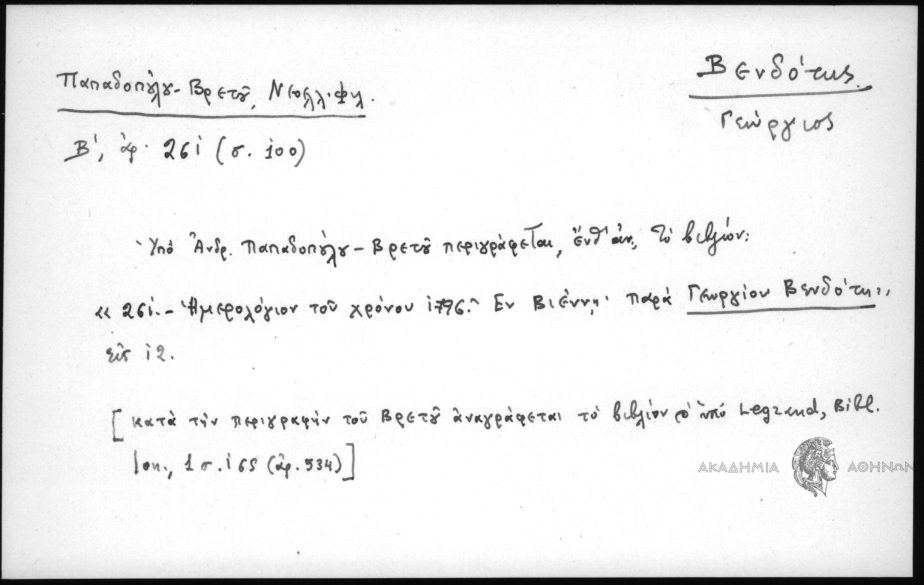 Βενδότης
Γεώργιος
Παπαδοπούλου-Βρετοῦ, Νεοελλ. Φιλ.
Β', ἀρ. 261 (σ. 100)
Ὑπὸ Ἀνδρ. Παπαδοπούλου-Βρετοῦ περιγράφεται, ἔνθ' ἀν., τὸ βιβλίον:
«261.- Ἡμερολόγιον τοῦ χρόνου 1796. Ἐν Βιέννῃ· παρὰ Γεωργίου Βενδότη·,
εἰς 12.
[κατὰ τὴν περιγραφὴν τοῦ Βρετοῦ ἀναγράφεται τὸ βιβλίον ὑπὸ Legrand, Bibl.
Ion., 1 σ. 165 (ἀρ. 534)]
ΑΚΑΔΗΜΙΑ ΑΘΗΝΩΝ